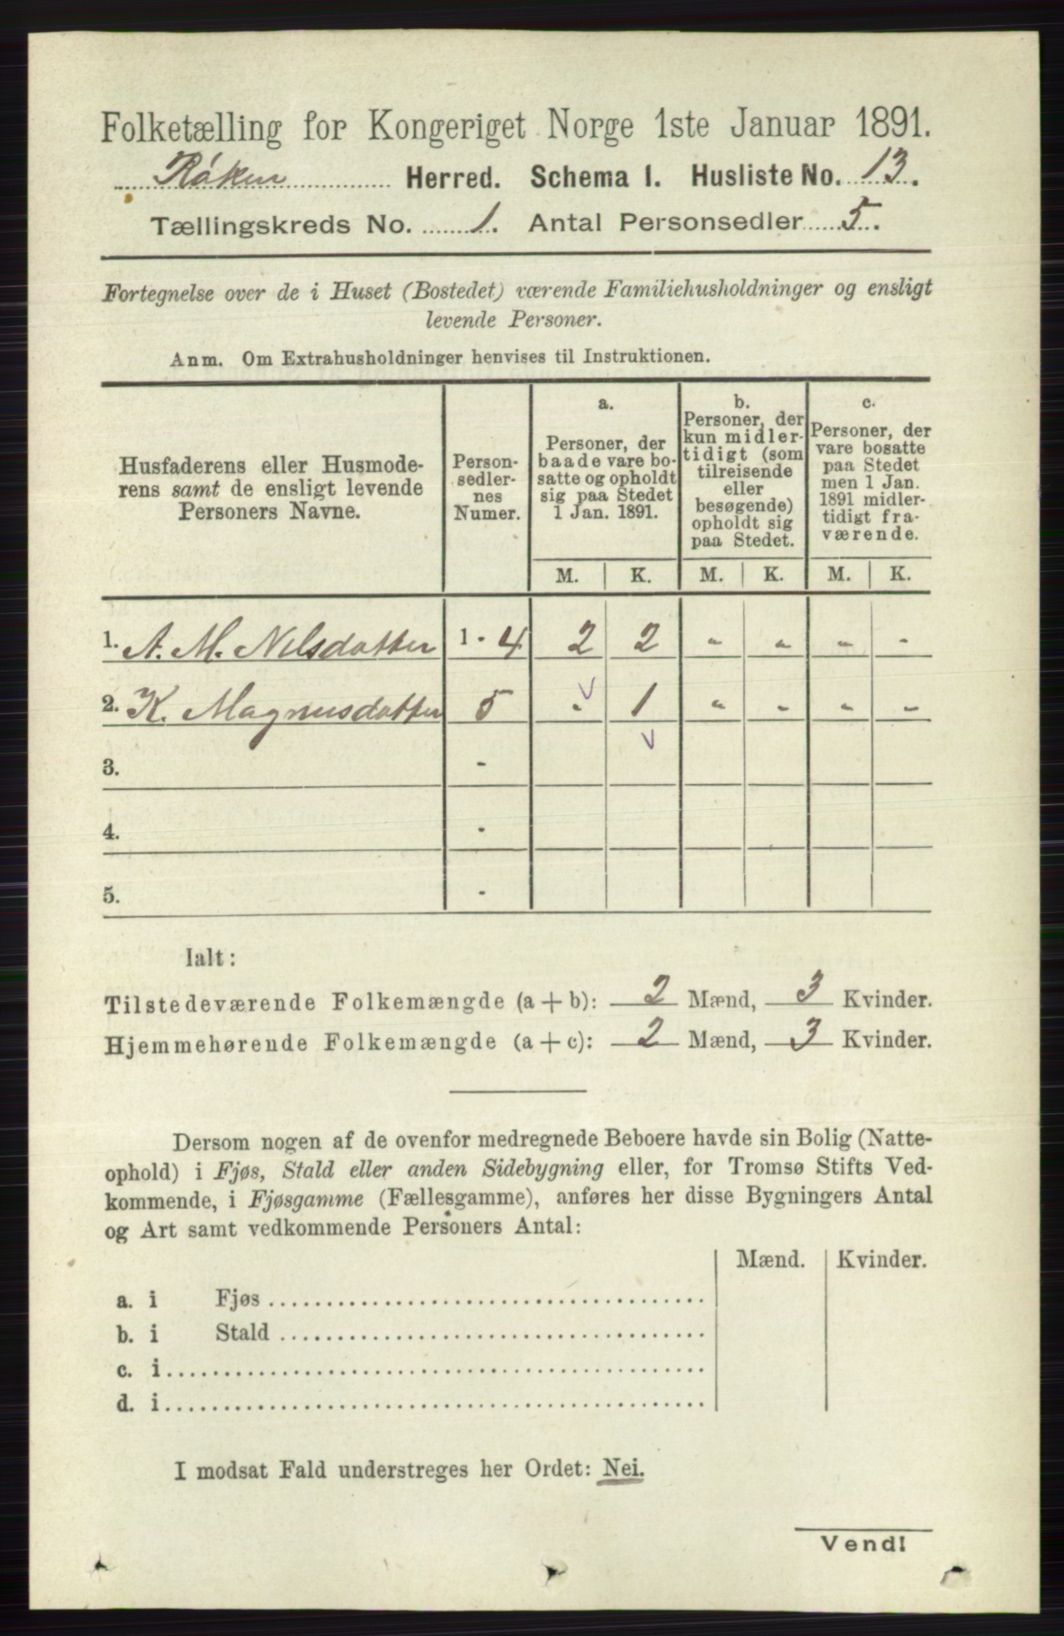 Folketælling for Kongeriget Norge 1ste Januar 1891.
Røken Herred. Schema I. Husliste No. 13.
Tællingskreds No. 1. Antal Personsedler 5.
Fortegnelse over de i Huset (Bostedet) værende Familiehusholdninger og ensligt
levende Personer.
Anm. Om Extrahusholdninger henvises til Instruktionen.
Husfaderens eller Husmode-
rens samt de ensligt levende
Personers Navne.
Person-
sedler-
nes
Numer.
a.
Personer, der
baade vare bo-
satte og opholdt
sig paa Stedet
1 Jan. 1891.
b.
Personer, der
kun midler-
tidigt (som
tilreisende
eller
besøgende)
opholdt sig
paa Stedet.
c.
Personer, der
vare bosatte
paa Stedet
men 1 Jan.
1891 midler-
tidigt fra-
værende.
M. K. M. K. M. K.
1. A. M. Nilsdatter 1 - 4 2 2 - - - -
2. K. Magnusdatter 5 - 1 - - - -
3. -
4. -
5. -
Ialt:
Tilstedeværende Folkemængde (a + b): 2 Mænd, 3 Kvinder.
Hjemmehørende Folkemængde (a + c): 2 Mænd, 3 Kvinder.
Dersom nogen af de ovenfor medregnede Beboere havde sin Bolig (Natte-
ophold) i Fjøs, Stald eller anden Sidebygning eller, for Tromsø Stifts Ved-
kommende, i Fjøsgamme (Fællesgamme), anføres her disse Bygningers Antal
og Art samt vedkommende Personers Antal:
Mænd. Kvinder.
a. i Fjøs
b. i Stald
c. i
d. i
I modsat Fald understreges her Ordet: Nei.
Vend!